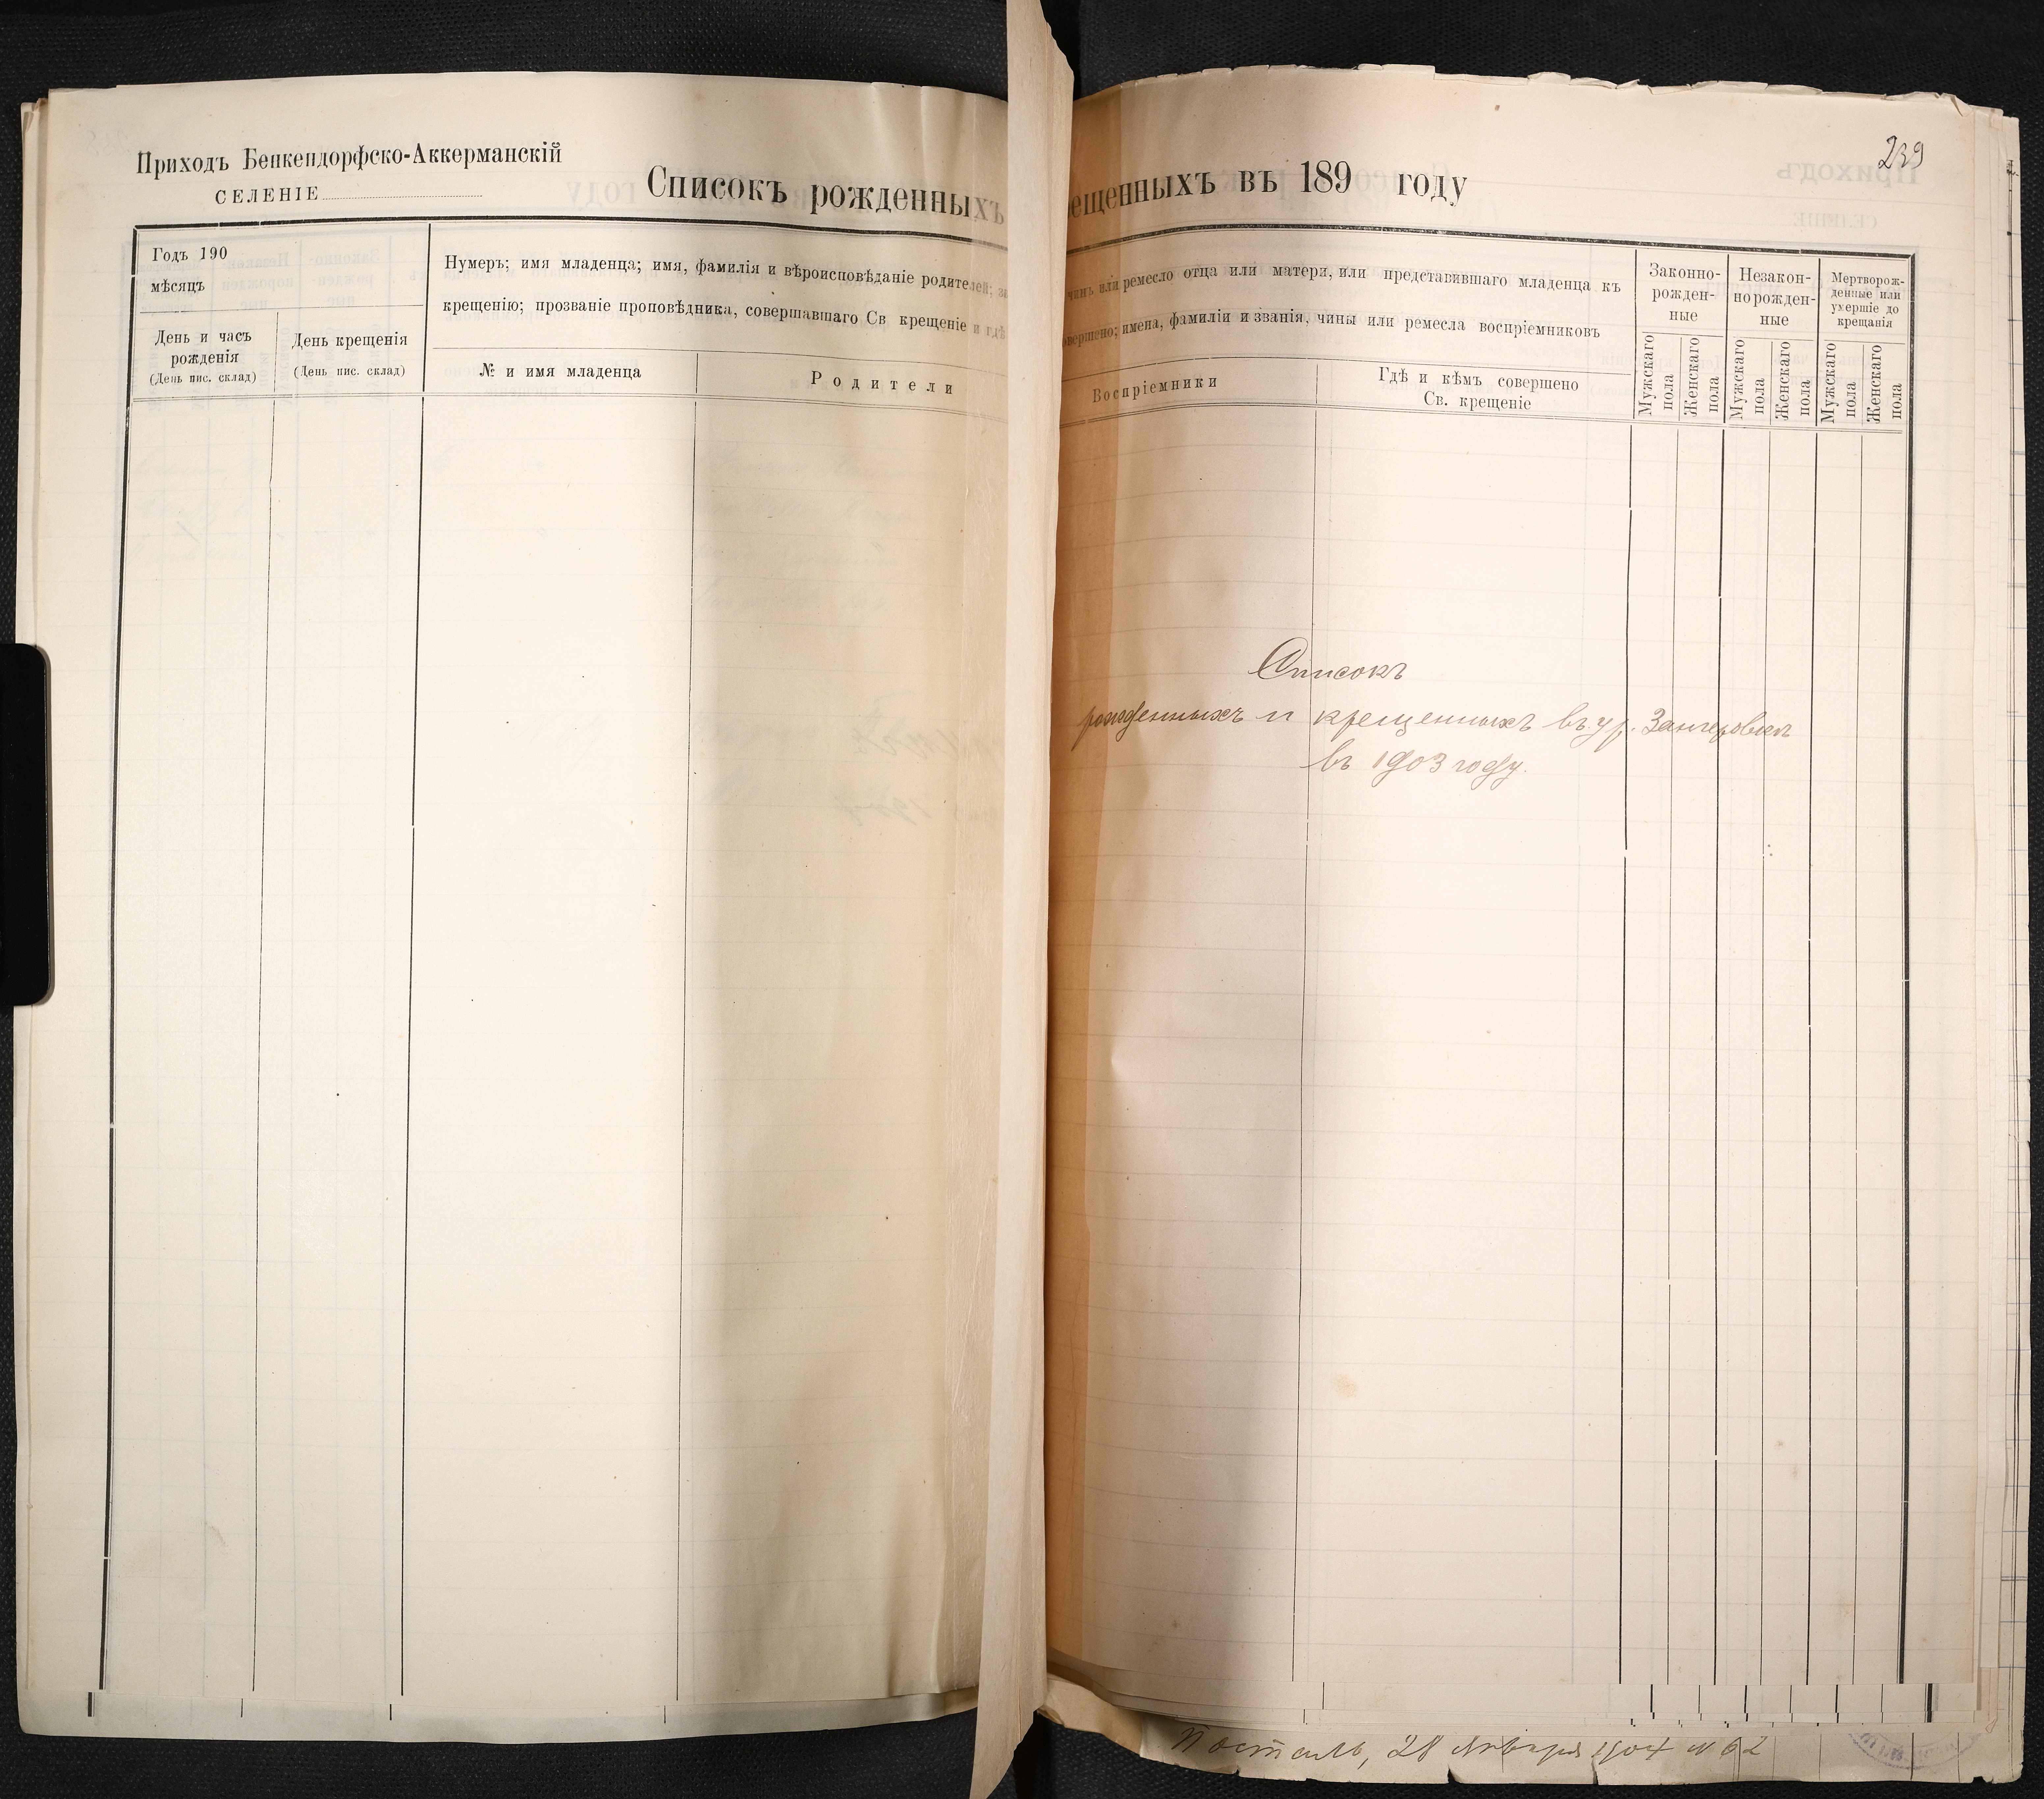 Приходъ Бенкендорфско-Аккерманскій
СЕЛЕНІЕ
Списокъ рожденныхъ
Годъ 190
мѣсяцъ
День и часъ
рожденія
(День пис. склад)
День крещенія
(День пис. склад)
Нумеръ; имя младенца; имя, фамилія и вѣроисповѣданіе родителей;
крещенію; прозваніе проповѣдника, совершавшаго Св крещеніе и гдѣ
№ и имя младенца
Родители
239
ещенныхъ въ 189 году
чинъ или ремесло отца или матери, или представившаго младенца къ
овершено; имена, фамиліи и званія, чины или ремесла воспріемниковъ
Воспріемники
Гдѣ и кѣмъ совершено
Св. крещеніе
Законно-
рожден-
ные
Незакон-
норожден-
ные
Мертворож-
денные или
ухершіе до
крещанія
Мужскаго
пола
Женскаго
пола
Мужскаго
пола
Женскаго
пола
Мужскаго
пола
Женскаго
пола
Списокъ
рожденныхъ и крещенныхъ въ ур.
въ 1903 году.
28 Января 1904 № 62